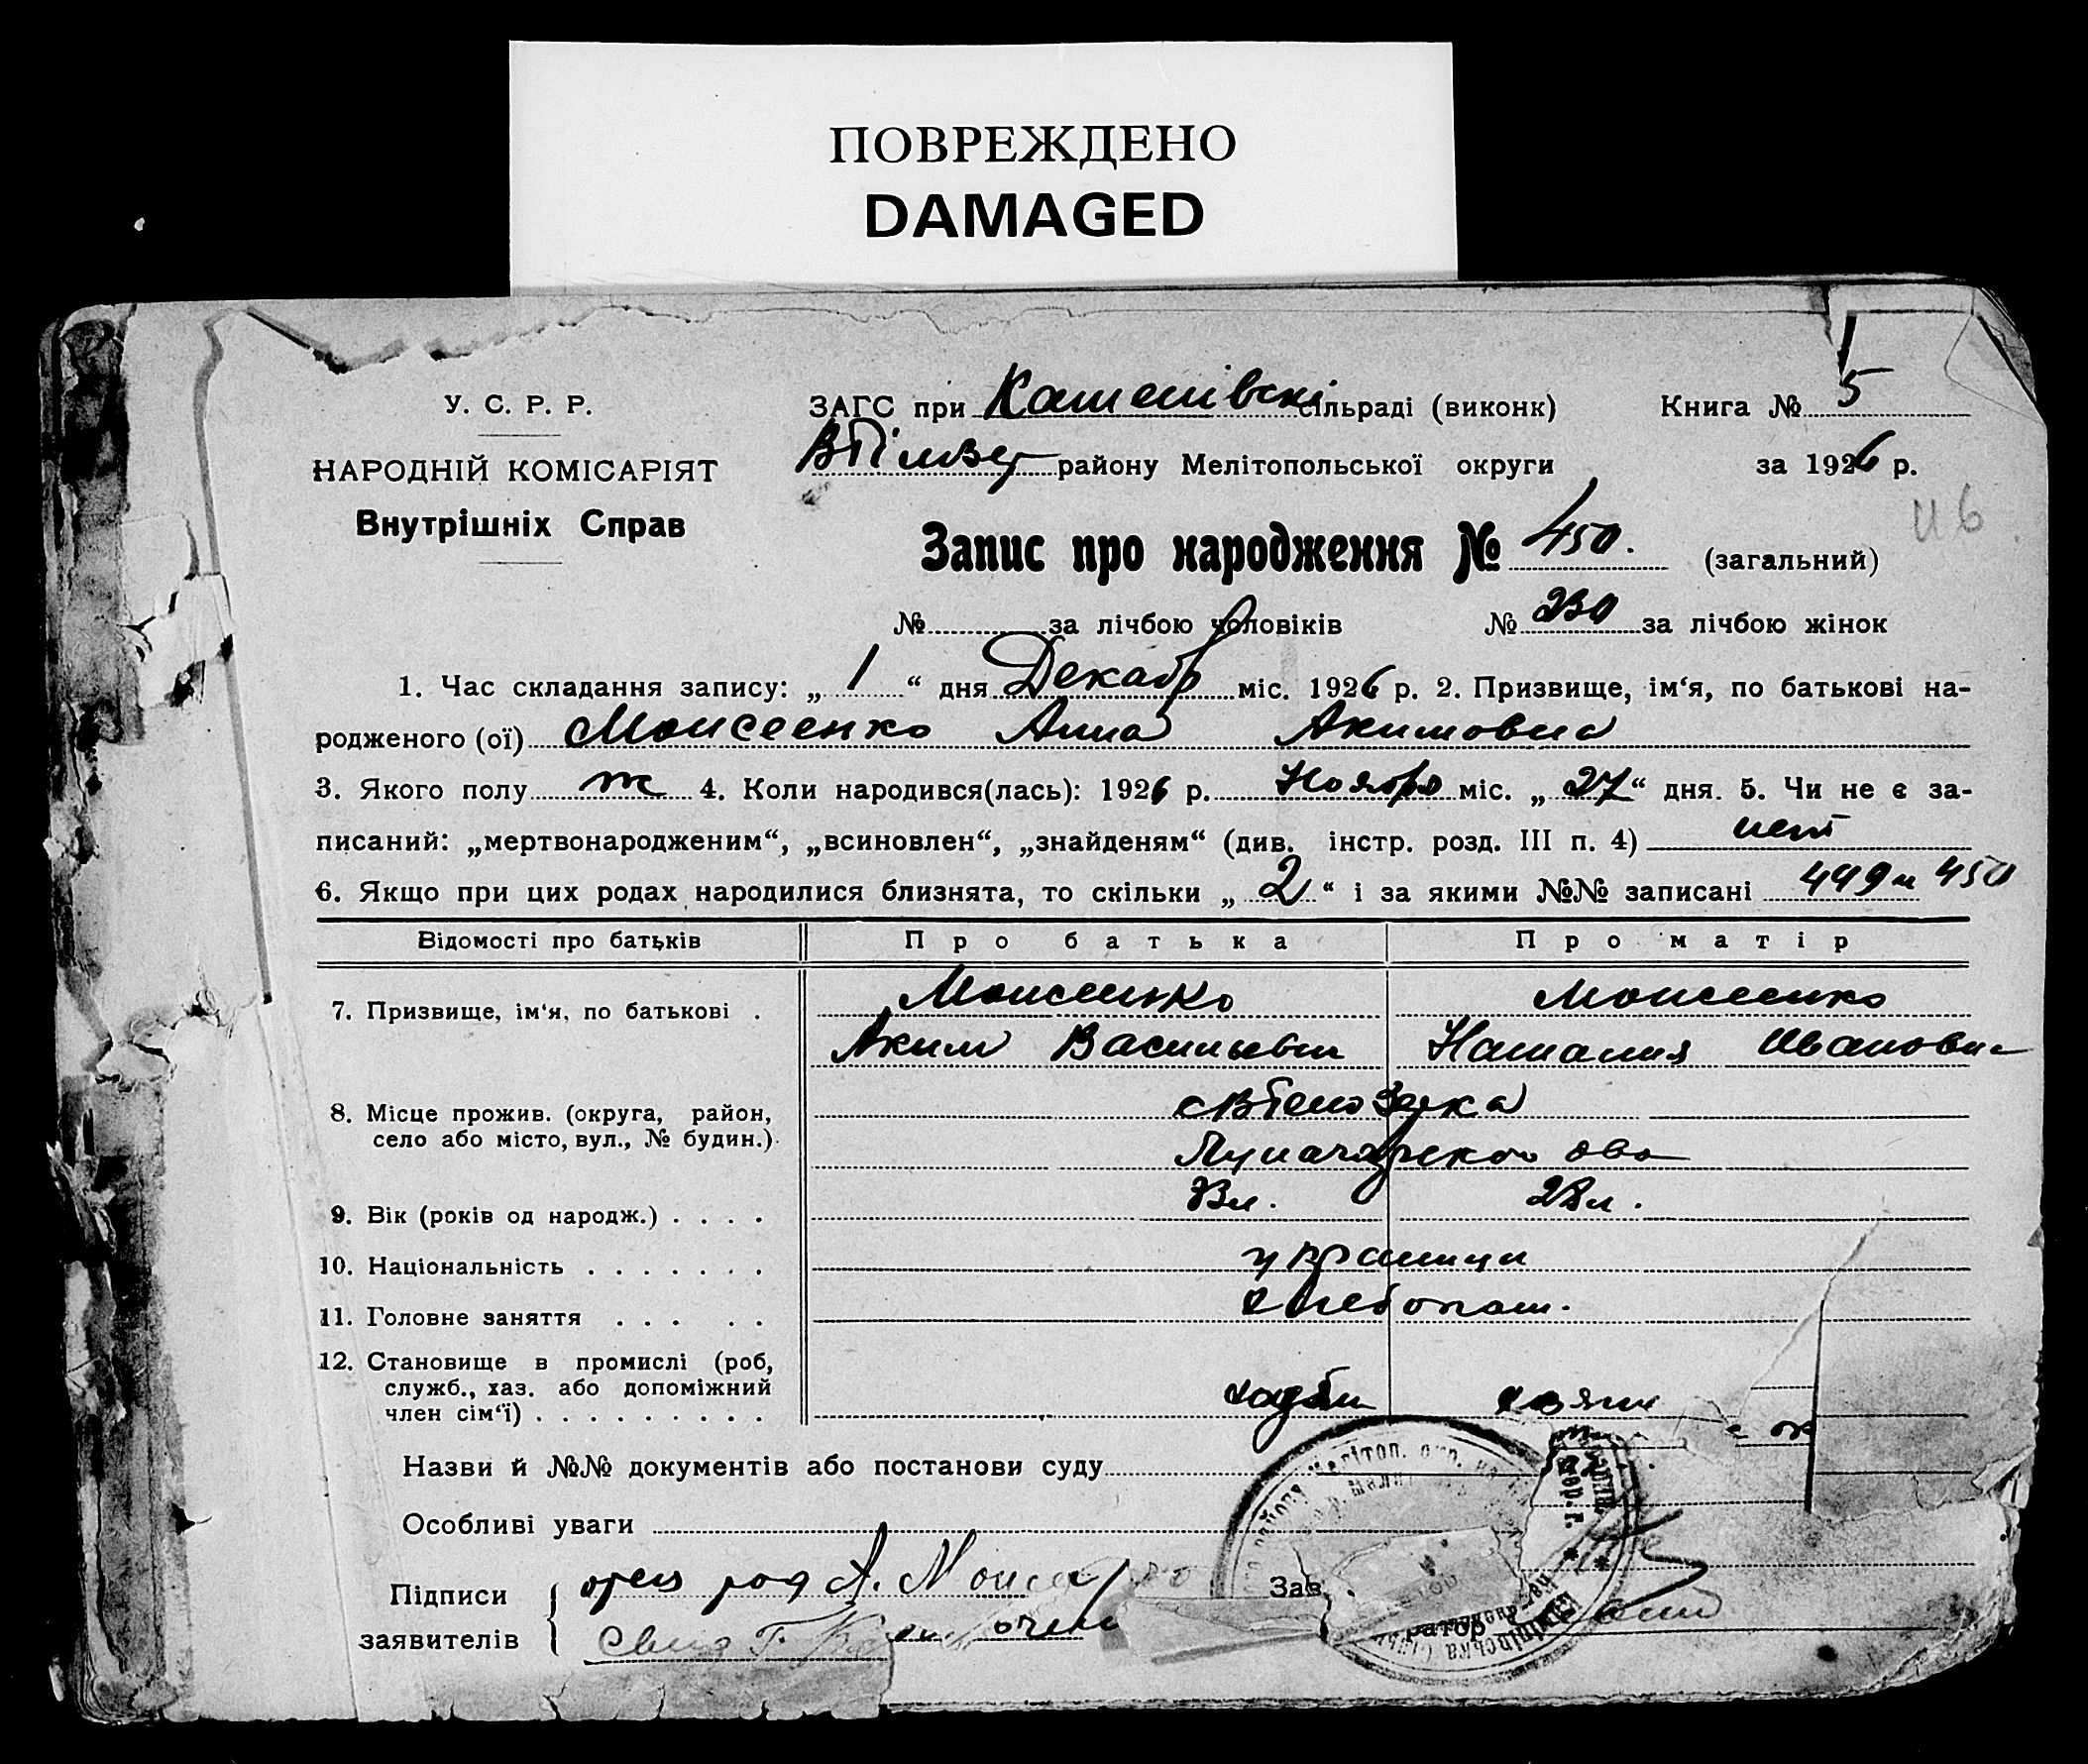 ПОВРЕЖДЕНО
DAMAGED
У. С. Р. Р.
НАРОДНІЙ КОМІСАРІЯТ
Внутрішніх Справ
ЗАГС при сільраді (виконк) Книга № 5
району Мелітопольської округи за 1926 р.
Запис про народження № 450. (загальний)
№ за лічбою чоловіків № 230 за лічбою жінок
1. Час складання запису: „ 1 “ дня Декабр міс. 1926 р. 2. Призвище, ім‘я, по батькові на-
родженого (ої) Моисеенко Анна Акимовна
3. Якого полу ж 4. Коли народився(лась): 1926 р. Ноября міс. „ 27 “ дня. 5. Чи не є за-
писаний: „мертвонародженим“, „всиновлен“, „знайденям“ (див. інстр. розд. III п. 4) нет
6. Якщо при цих родах народилися близнята, то скільки „ 2 “ і за якими №№ записані 449 и 450
Відомості про батьків Про батька Про матір
7. Призвище, ім‘я, по батькові . Моисеенко Моисеенко
Аким Васильевич Наталия Ивановна
8. Місце прожив. (округа, район,
село або місто, вул., № будин.)
9. Вік (років од народж.) . . . . 28 л.
10. Національність . . . . . . . украинцы
11. Головне заняття . . . . . хлебопаш.
12. Становище в промислі (роб,
служб., хаз. або допоміжний
член сім‘ї) . . . . . . . . .
Назви й №№ документів або постанови суду
Особливі уваги
Підписи отец А. Моисе Зав.
заявителів